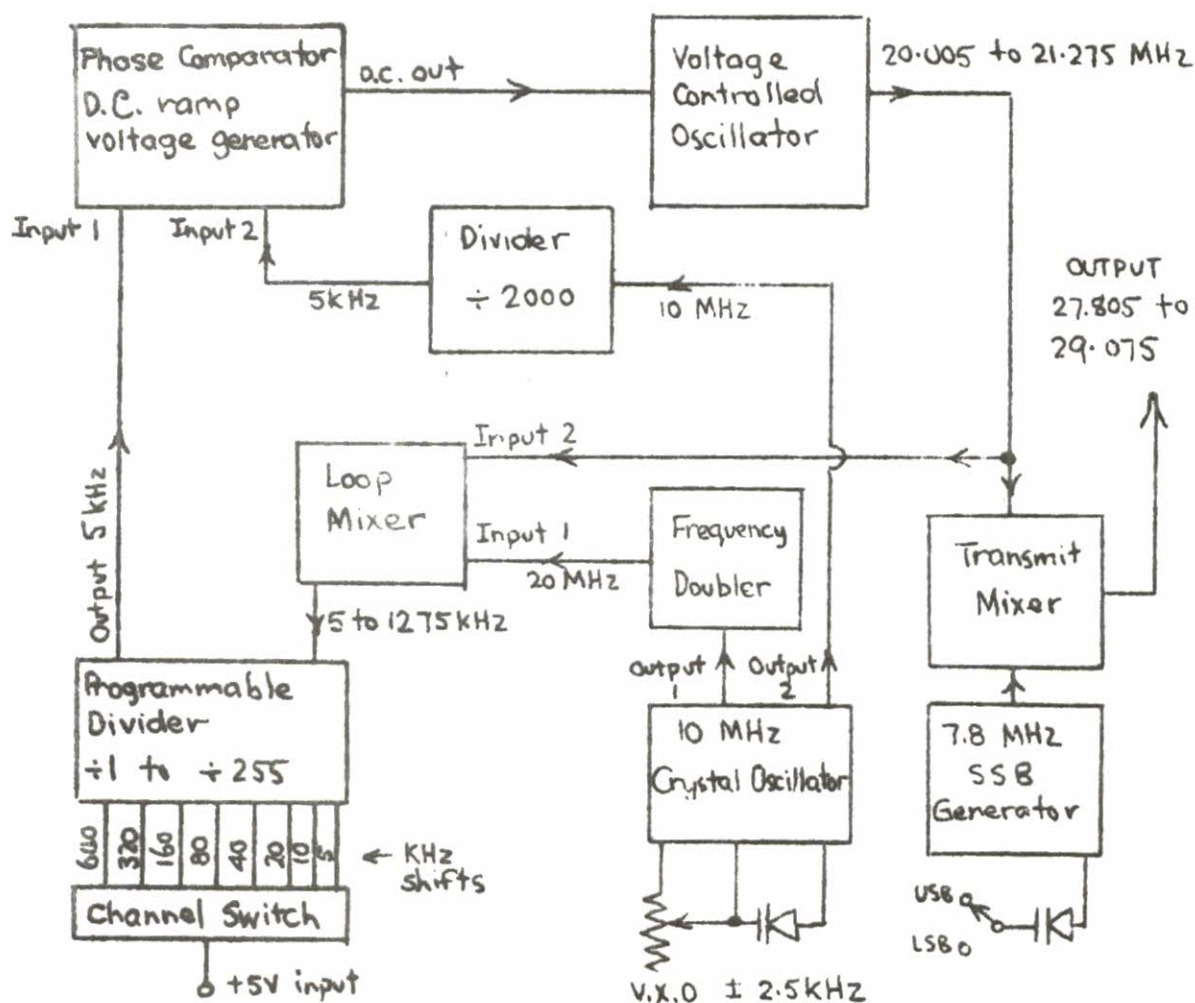 Phase Comparator
D.C. ramp
voltage generator
a.c. out
Voltage
Controlled
Oscillator
20.005 to 21.275 MHz
Input 1
Input 2
Divider
÷ 2000
5kHz
10 MHz
OUTPUT
27.805 to
29.075
Output 5 kHz
Loop
Mixer
Input 2
Input 1
20 MHz
Frequency
Doubler
Transmit
Mixer
5 to 1275 kHz
Output
1
Output
2
Programmable
Divider
÷1 to ÷ 255
10 MHz
Crystal Oscillator
7.8 MHz
SSB
Generator
640
320
160
80
40
20
10
5
← KHz
shifts
Channel Switch
+5V input
V.X.O ± 2.5kHz
USB
LSB